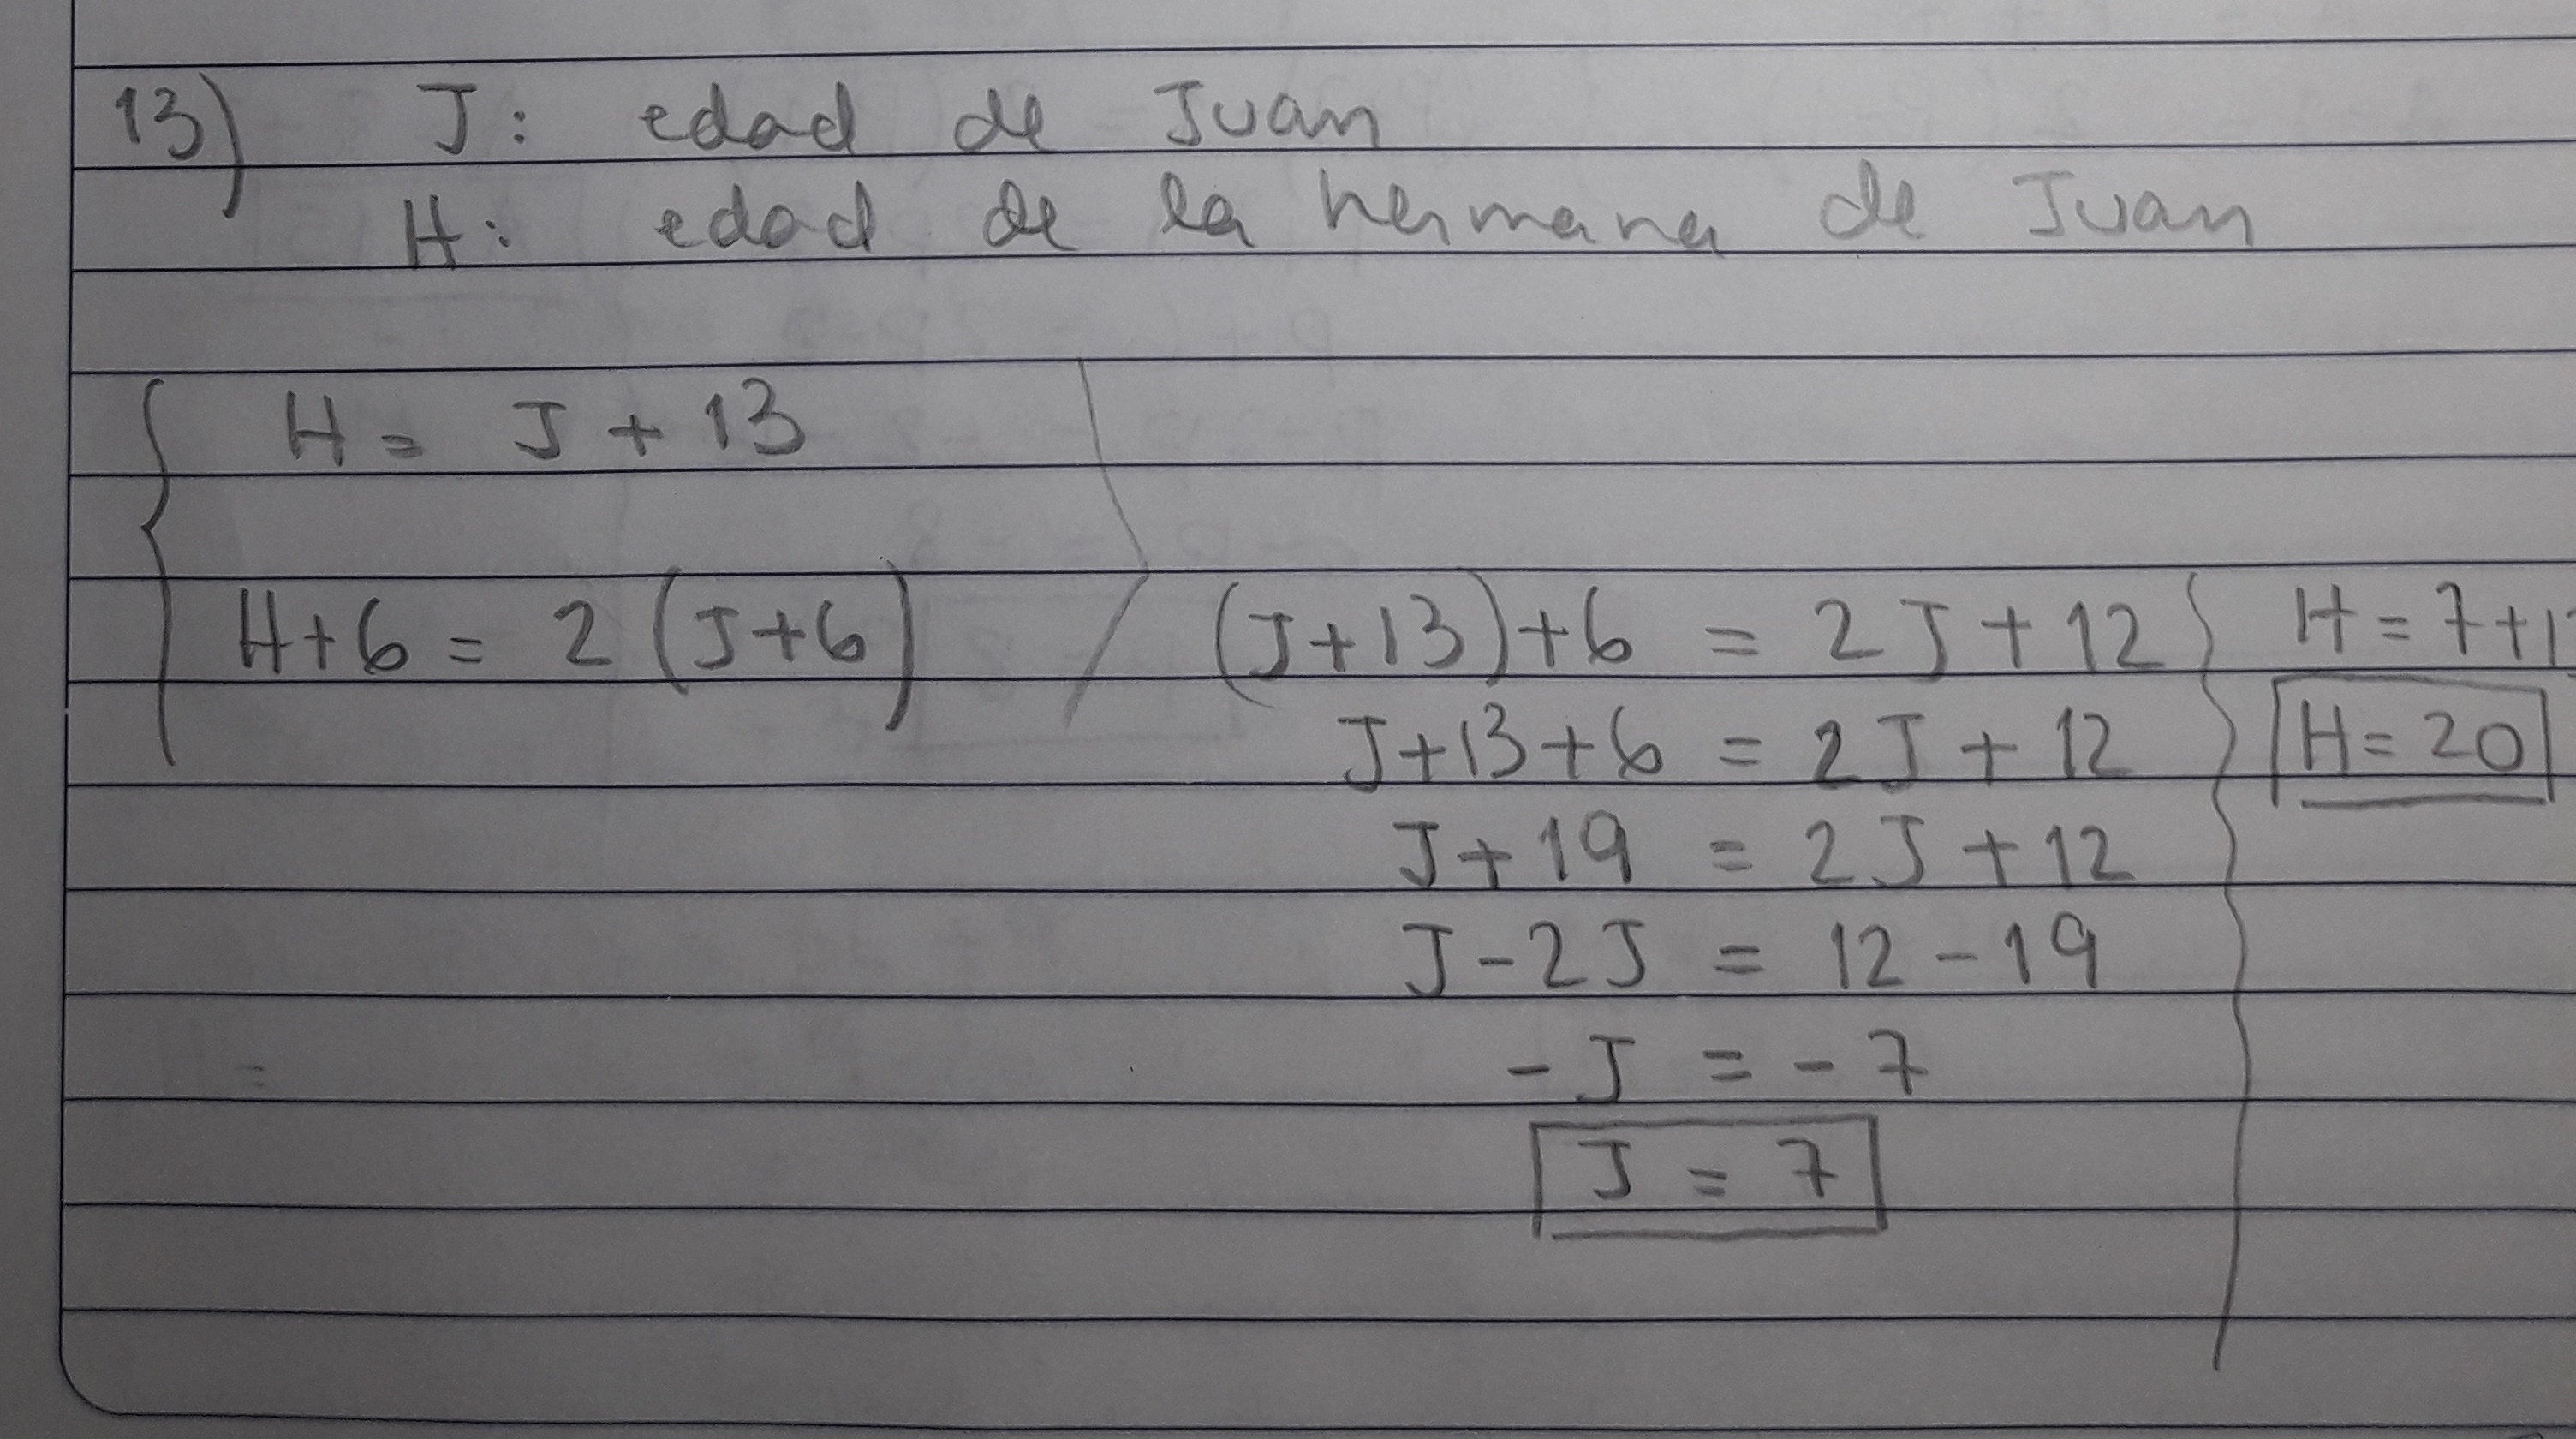 13) J: edad de Juan
H: edad de la hermana de Juan
H = J + 13
H+6 = 2 (J+6)
(J+13)+6 = 2J+12
J+13+6 = 2J+12
J+19 = 2J+12
J-2J = 12-19
-J = -7
J = 7
H = 7+1
H = 20